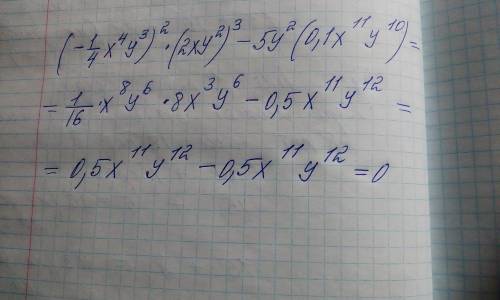 (-1/4 x⁴y³)² · (2xy²)³ - 5y² (0,1x¹¹y¹⁰) =
= 1/16 · x⁸y⁶ · 8x³y⁶ - 0,5x¹¹y¹² =
= 0,5x¹¹y¹² - 0,5x¹¹y¹² = 0